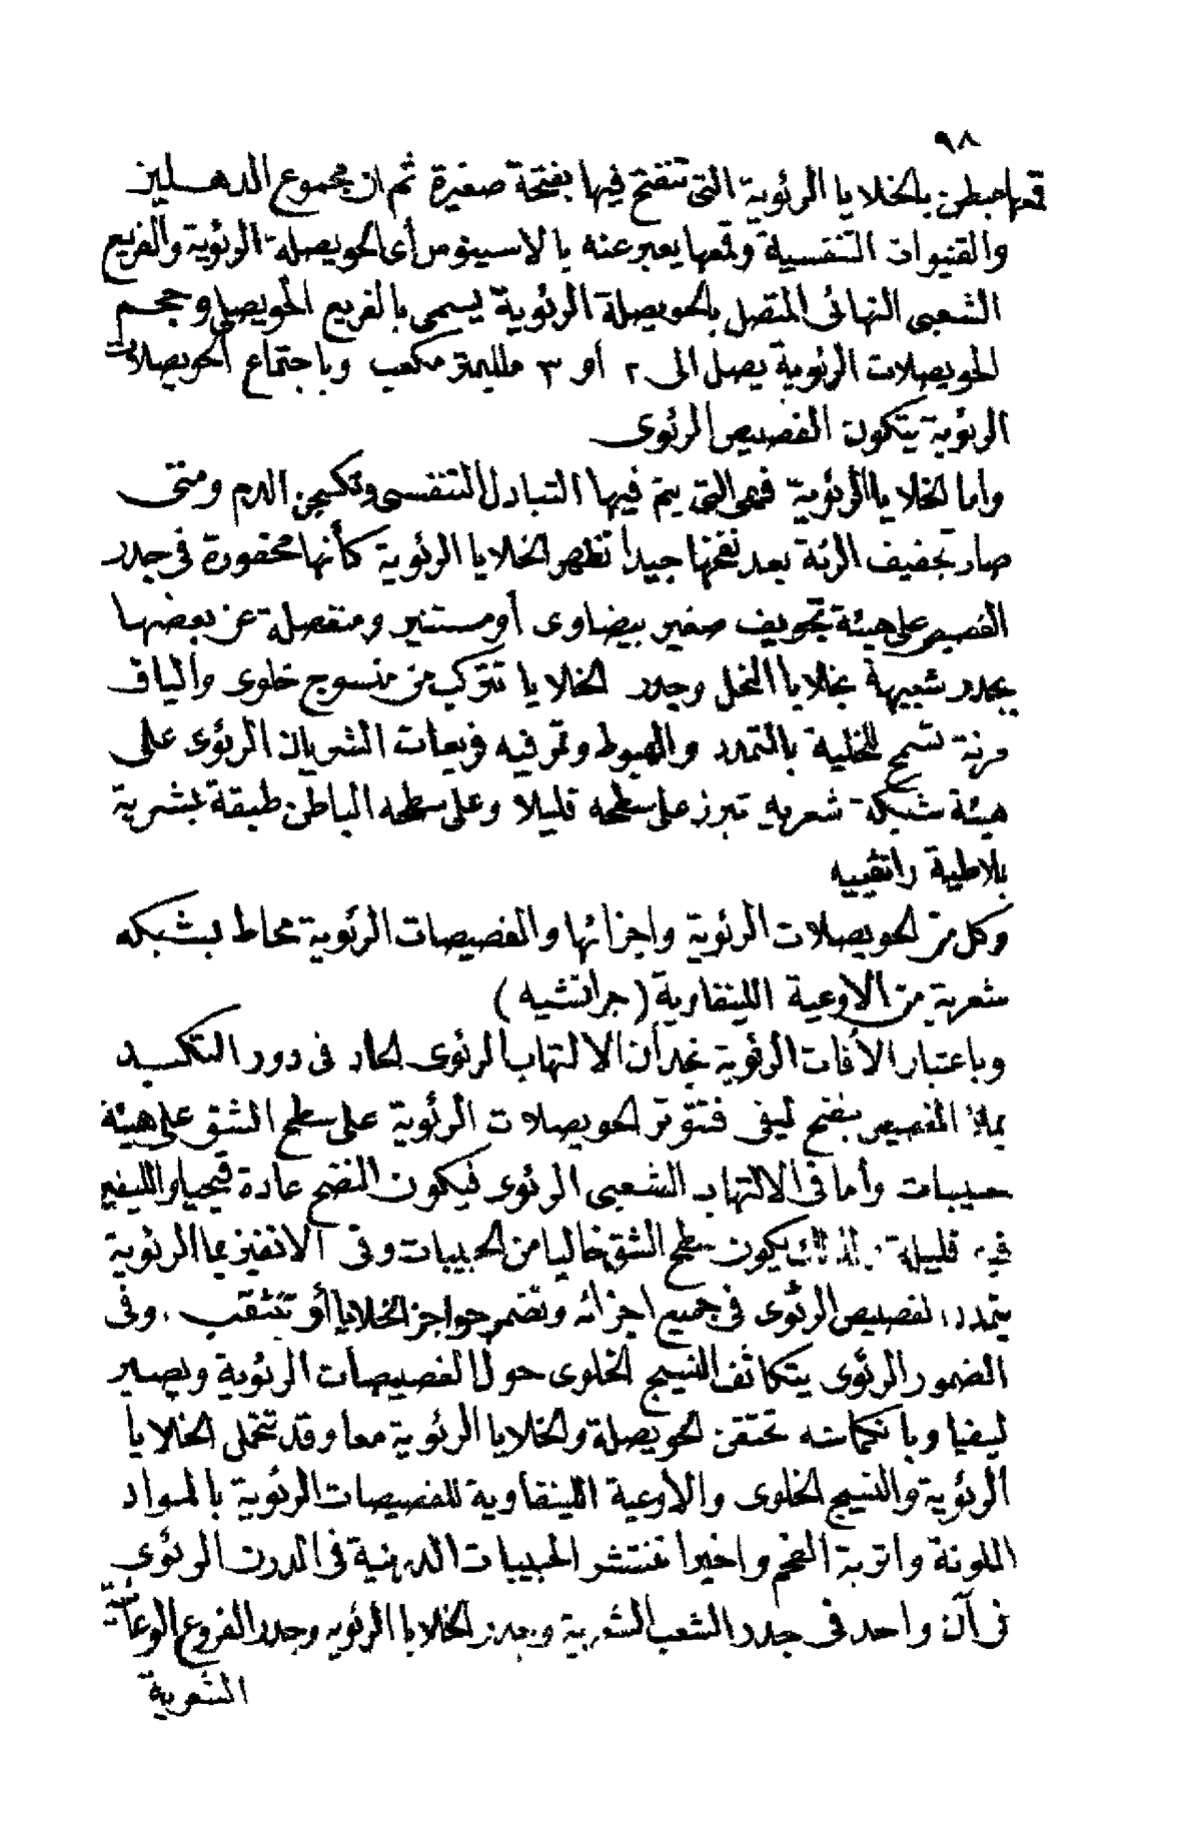 ٩٨
قمعها مبطن بالخلايا الرئوية التى تنفتح فيها بفتحة صغيرة ثم ان مجموع الدهـليز
والقنيوات التنفسية وقمعها يعبر عنه بالاسينوس أى الحويصلة الرئوية والفريع
الشعبى النهائى المتصل بالحويصلة الرئوية يسمى بالفريع الحويصلى وحجـم
الحويصلات الرئوية يصل الى ٢ أو ٣ ملليمتر مكعب وباجتماع الحويصلات
الرئوية يتكون الفصيص الرئوى
واما الخلايا الرئوية فهى التى يتم فيها التبادل التنفسى وتكسجن الدم ومتى
صار تجفيف الرئة بعد نفخها جيدا تظهر الخلايا الرئوية كأنها محفورة فى جدر
الفصيص على هيئة تجويف صغير بيضاوى أو مستدير ومنفصلة عن بعضها
بجدر شبيهة بخلايا النحل وجدر الخلايا تتركب من منسوج خلوى وألياف
مرنة تسمح للخلية بالتمدد والهبوط وتمر فيه فريعات الشريان الرئوى على
هيئة شبكة شعرية تبرز على سطحه قليلا وعلى سطحه الباطن طبقة بشرية
بلاطية رانفييه
وكل من الحويصلات الرئوية واجزائها والفصيصات الرئوية محاط بشبكه
شعرية من الاوعية اللينفاوية (جرانشيه)
وباعتبار الآفات الرئوية نجد أن الالتهاب الرئوى الحاد فى دور التكبـد
يملأ الفصيص بنضح ليفى فتتوتر الحويصلات الرئوية على سطح الشق على هيئة
حبيبات وأما فى الالتهاب الشعبى الرئوى فيكون النضح عادة قيحيا والليفين
فيه قليلة ولذلك يكون سطح الشق خاليا من الحبيبات وفى الانفيزيما الرئوية
يتمدد الفصيص الرئوى فى جميع اجزائه وتضمر حواجز الخلايا أو تنثقب . وفى
الضمور الرئوى يتكاثف النسيج الخلوى حول الفصيصات الرئوية ويصير
ليفيا وبانكماشه تختنق الحويصلة والخلايا الرئوية معا وقد تتحمل الخلايا
الرئوية والنسيج الخلوى والأوعية اللينفاوية للفصيصات الرئوية بالمواد
الملونة واتربة الفحم واخيرا تنتشر الحبيبات الدرنية فى الدرن الرئوى
فى آن واحد فى جدر الشعب الشعرية وبجدر الخلايا الرئويه وجدر الفروع الوعائية
الشعرية